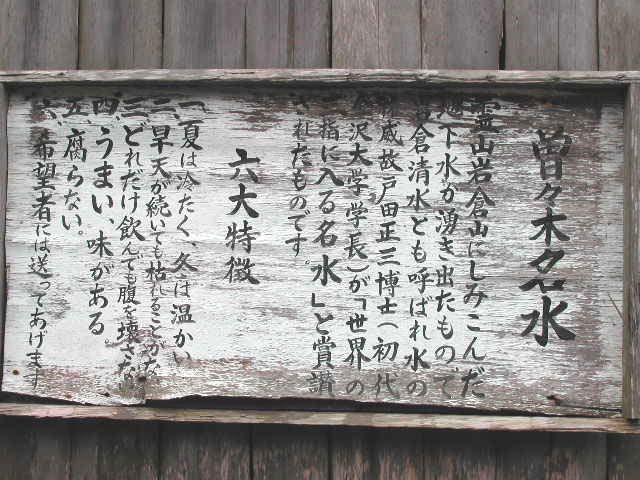 曽々木名水
霊山岩倉山にしみこんだ
地下水が湧き出たもので
岩倉清水とも呼ばれ水の
権威故戸田正三博士(初代
金沢大学学長)が「世界の
指に入る名水」と賞讃
されたものです。
六大特徴
一、夏は冷たく、冬は温かい
二、旱天が続いても枯れることがな
三、どれだけ飲んでも腹を壊さな
四、うまい、味がある。
五、腐らない。
六、希望者には送ってあげます